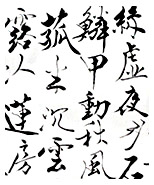 絲虛夜月石
鱗甲動秋風
菰米沉雲
露冷蓮房